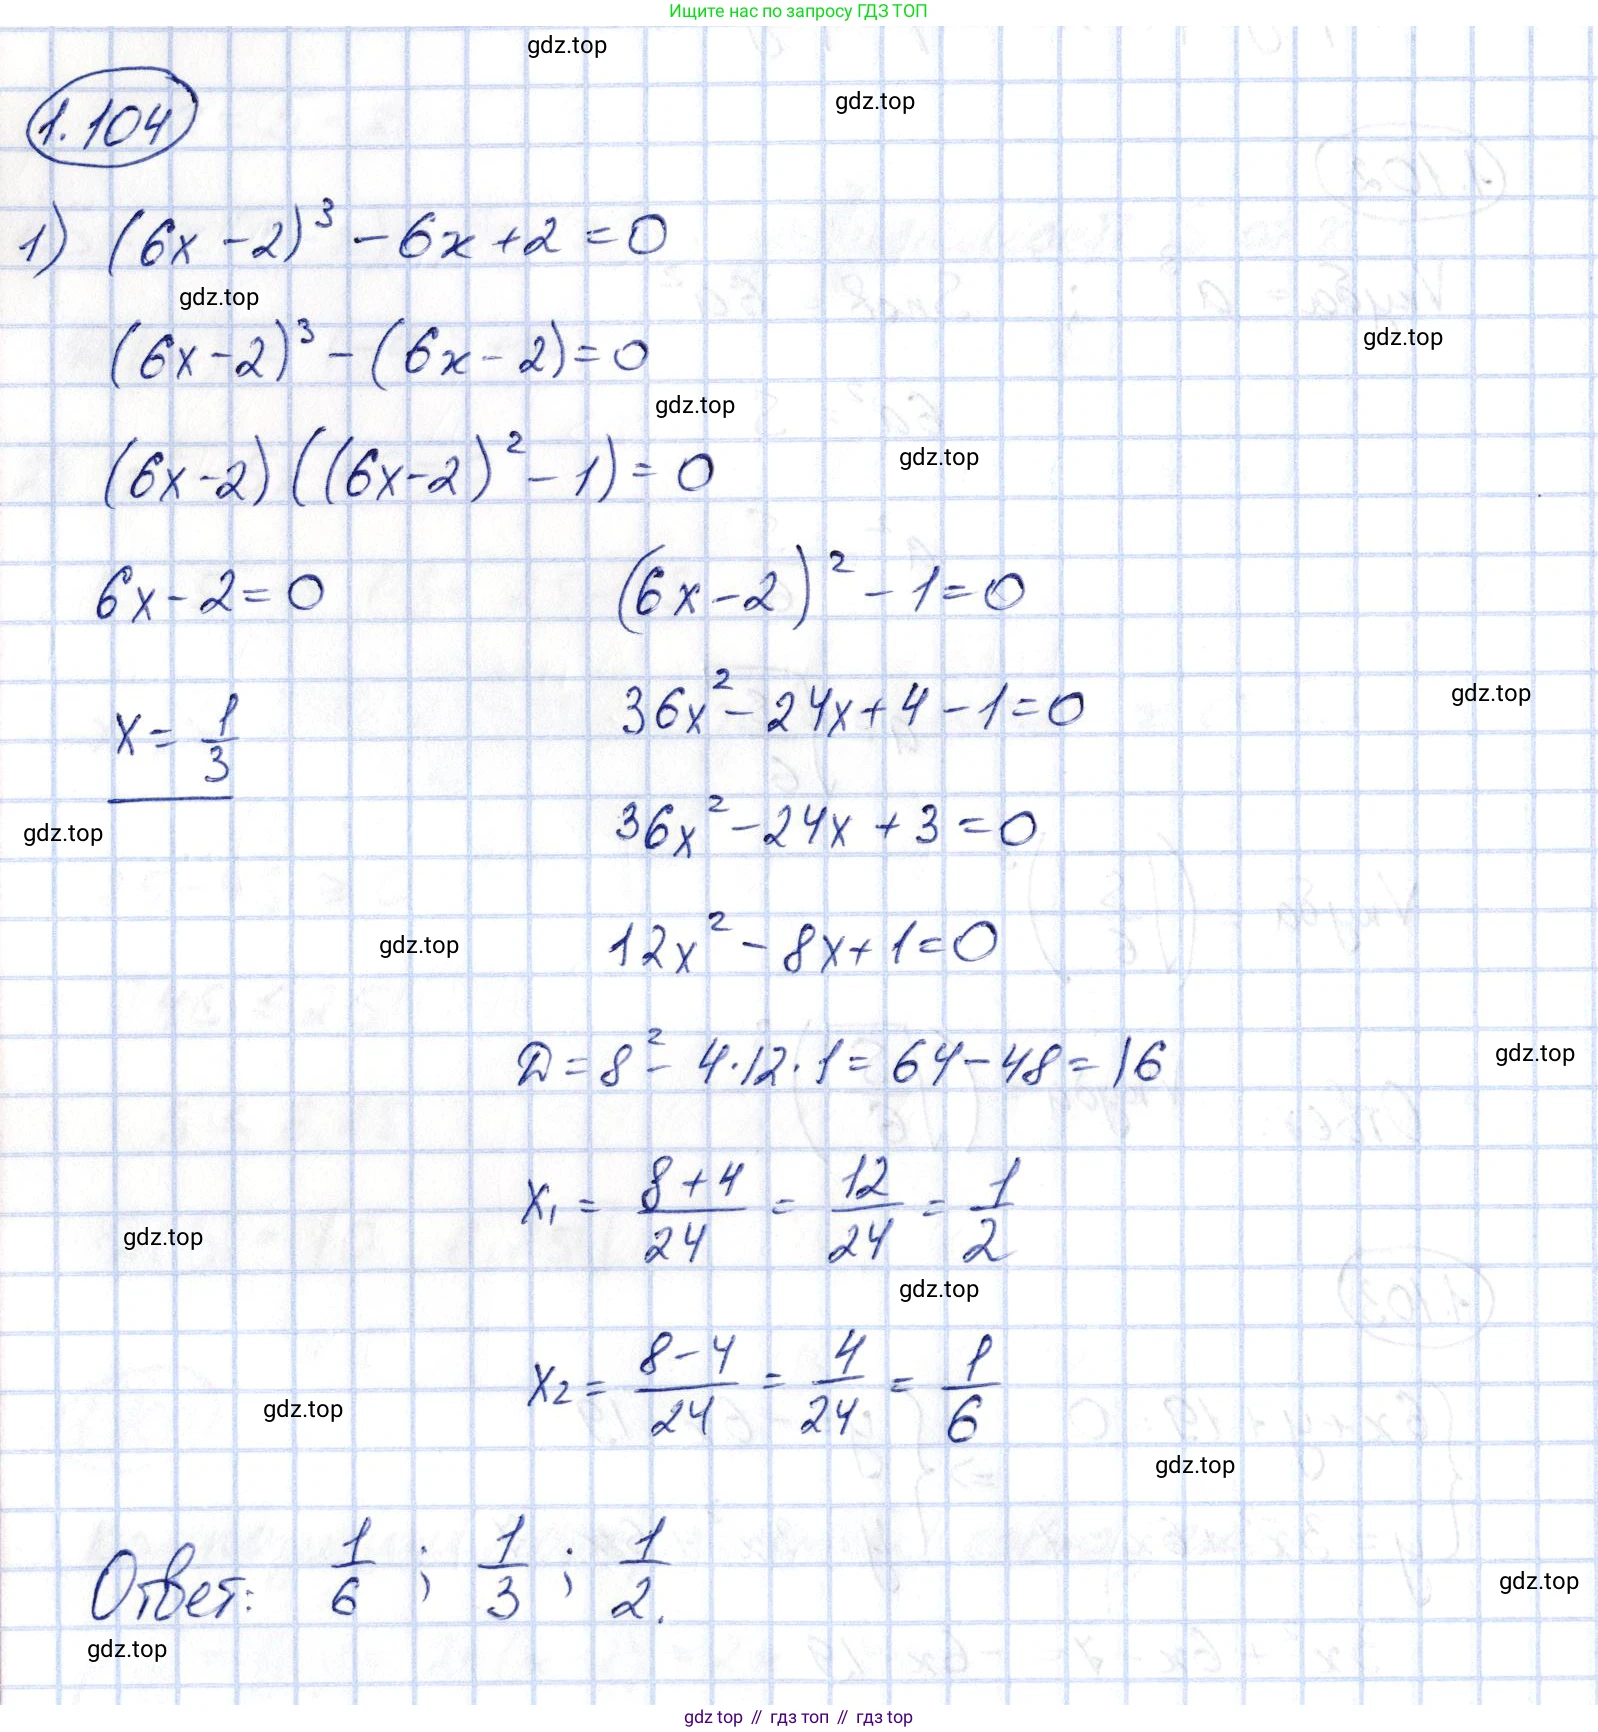 Ищите нас по запросу ГДЗ ТОП
gdz.top
gdz.top
1.104
1) (6x - 2)³ - 6x + 2 = 0
gdz.top
(6x - 2)³ - (6x - 2) = 0
gdz.top
gdz.top
(6x - 2)((6x - 2)² - 1) = 0
gdz.top
6x - 2 = 0 (6x - 2)² - 1 = 0
x = 1/3 36x² - 24x + 4 - 1 = 0
gdz.top
36x² - 24x + 3 = 0
gdz.top
12x² - 8x + 1 = 0
gdz.top
D = 8² - 4·12·1 = 64 - 48 = 16
gdz.top
x₁ = (8+4)/24 = 12/24 = 1/2
gdz.top
gdz.top
x₂ = (8-4)/24 = 4/24 = 1/6
gdz.top
gdz.top
Ответ: 1/6 ; 1/3 ; 1/2.
gdz.top
gdz.top
gdz top // гдз топ // гдз top